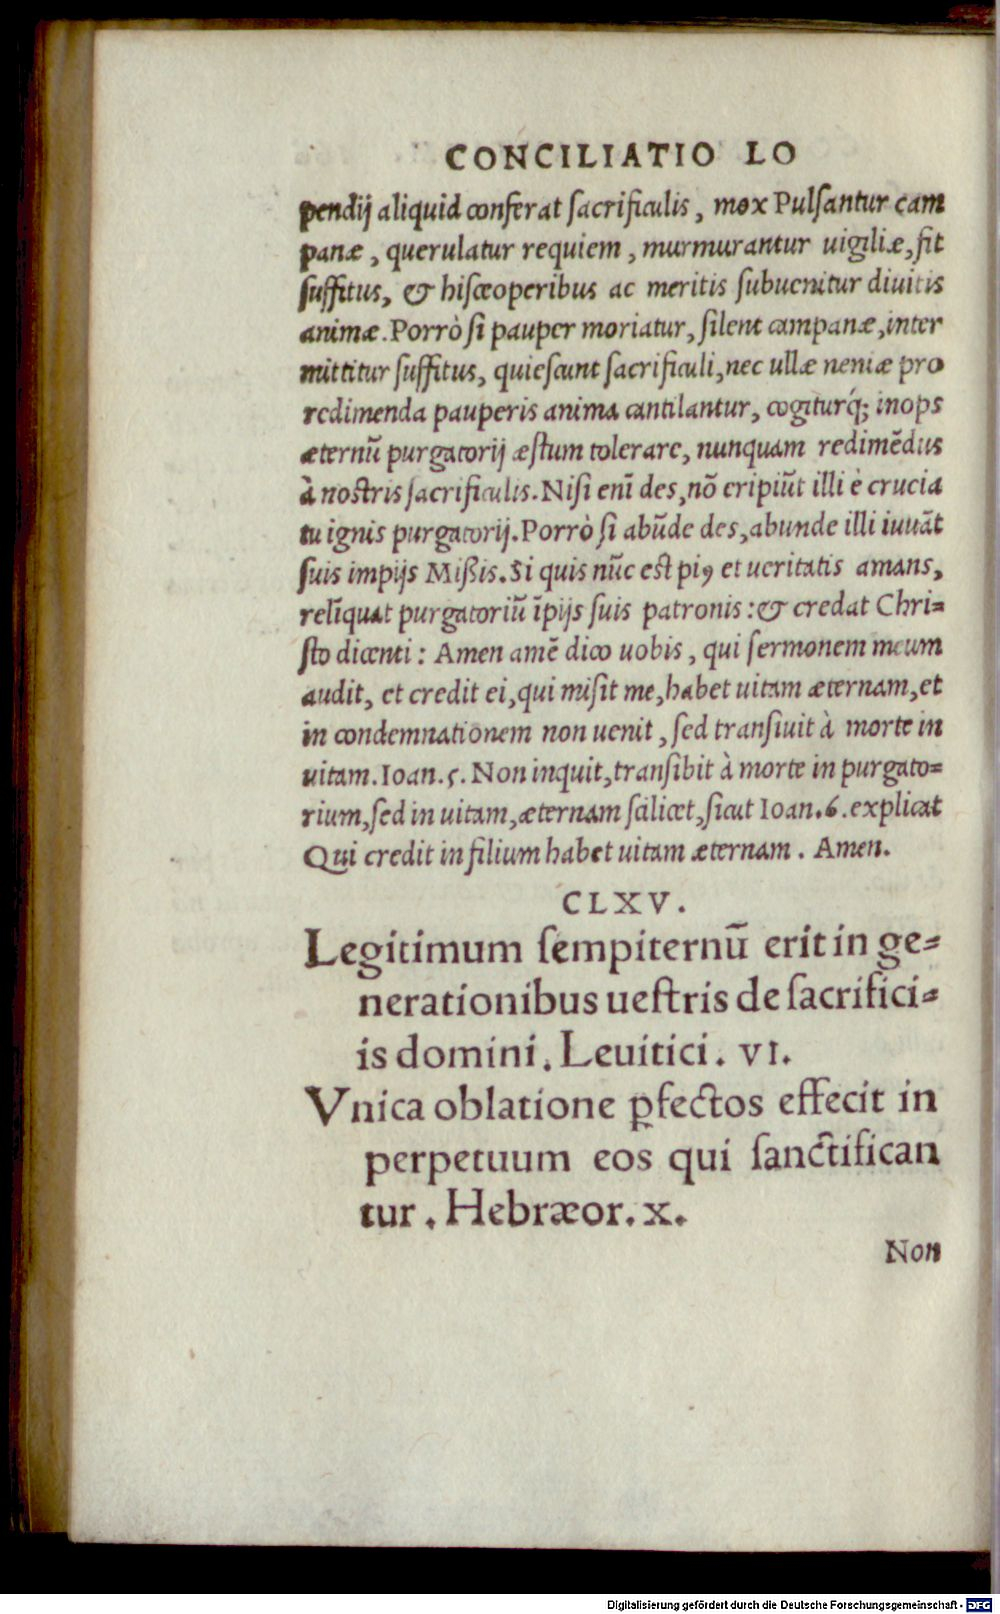 CONCILIATIO LO
pendij aliquid conferat sacrificulis, mox Pulsantur cam
panæ, querulatur requiem, murmurantur uigiliæ, fit
suffitus, & hisceoperibus ac meritis subuenitur diuitis
animæ. Porrò si pauper moriatur, silent campanæ, inter
mittitur suffitus, quiescunt sacrificuli, nec ullæ neniæ pro
redimenda pauperis anima cantilantur, cogiturq́; inops
æternū purgatorij æstum tolerare, nunquam redimēdus
à nostris sacrificulis. Nisi enī des, nō eripiūt illi è crucia
tu ignis purgatorij. Porrò si abūde des, abunde illi iuuāt
suis impijs Mißis. Si quis nūc est piꝰ et ueritatis amans,
relīquat purgatoriū īpijs suis patronis: & credat Chri=
sto dicenti: Amen amē dico uobis, qui sermonem meum
audit, et credit ei, qui misit me, habet uitam æternam, et
in condemnationem non uenit, sed transiuit à morte in
uitam. Ioan. 5. Non inquit, transibit à morte in purgato=
rium, sed in uitam, æternam scilicet, sicut Ioan. 6. explicat
Qui credit in filium habet uitam æternam. Amen.
CLXV.
Legitimum sempiternū erit in ge=
nerationibus uestris de sacrifici=
is domini. Leuitici. VI.
Vnica oblatione ꝑfectos effecit in
perpetuum eos qui sanctifican
tur. Hebræor. X.
Non
Digitalisierung gefördert durch die Deutsche Forschungsgemeinschaft - DFG